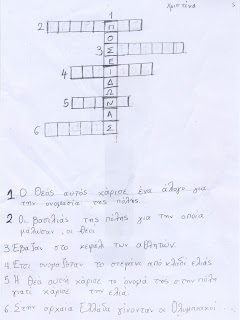 Χριστίνα
5
1
2
Π
Ο
3
Σ
Ε
4
Ι
Δ
Ω
5
Ν
Α
6
Σ
1 Ο Θεός αυτός χάρισε ένα άλογο για
την ονομασία της πόλης.
2 Οι βασιλιάς της πόλης για την οποία
μάλωσαν οι θεοί
3 Έβαζαν στο κεφάλι των αθλητών
4. Έτσι ονομαζόταν το στεφάνι από κλαδί ελιάς
5 Η θεά αυτή χάρισε το όνομά της στην πόλη
γιατί χάρισε την ελιά.
6. Στην αρχαία Ελλάδα γίνονταν οι Ολυμπιακοί ...